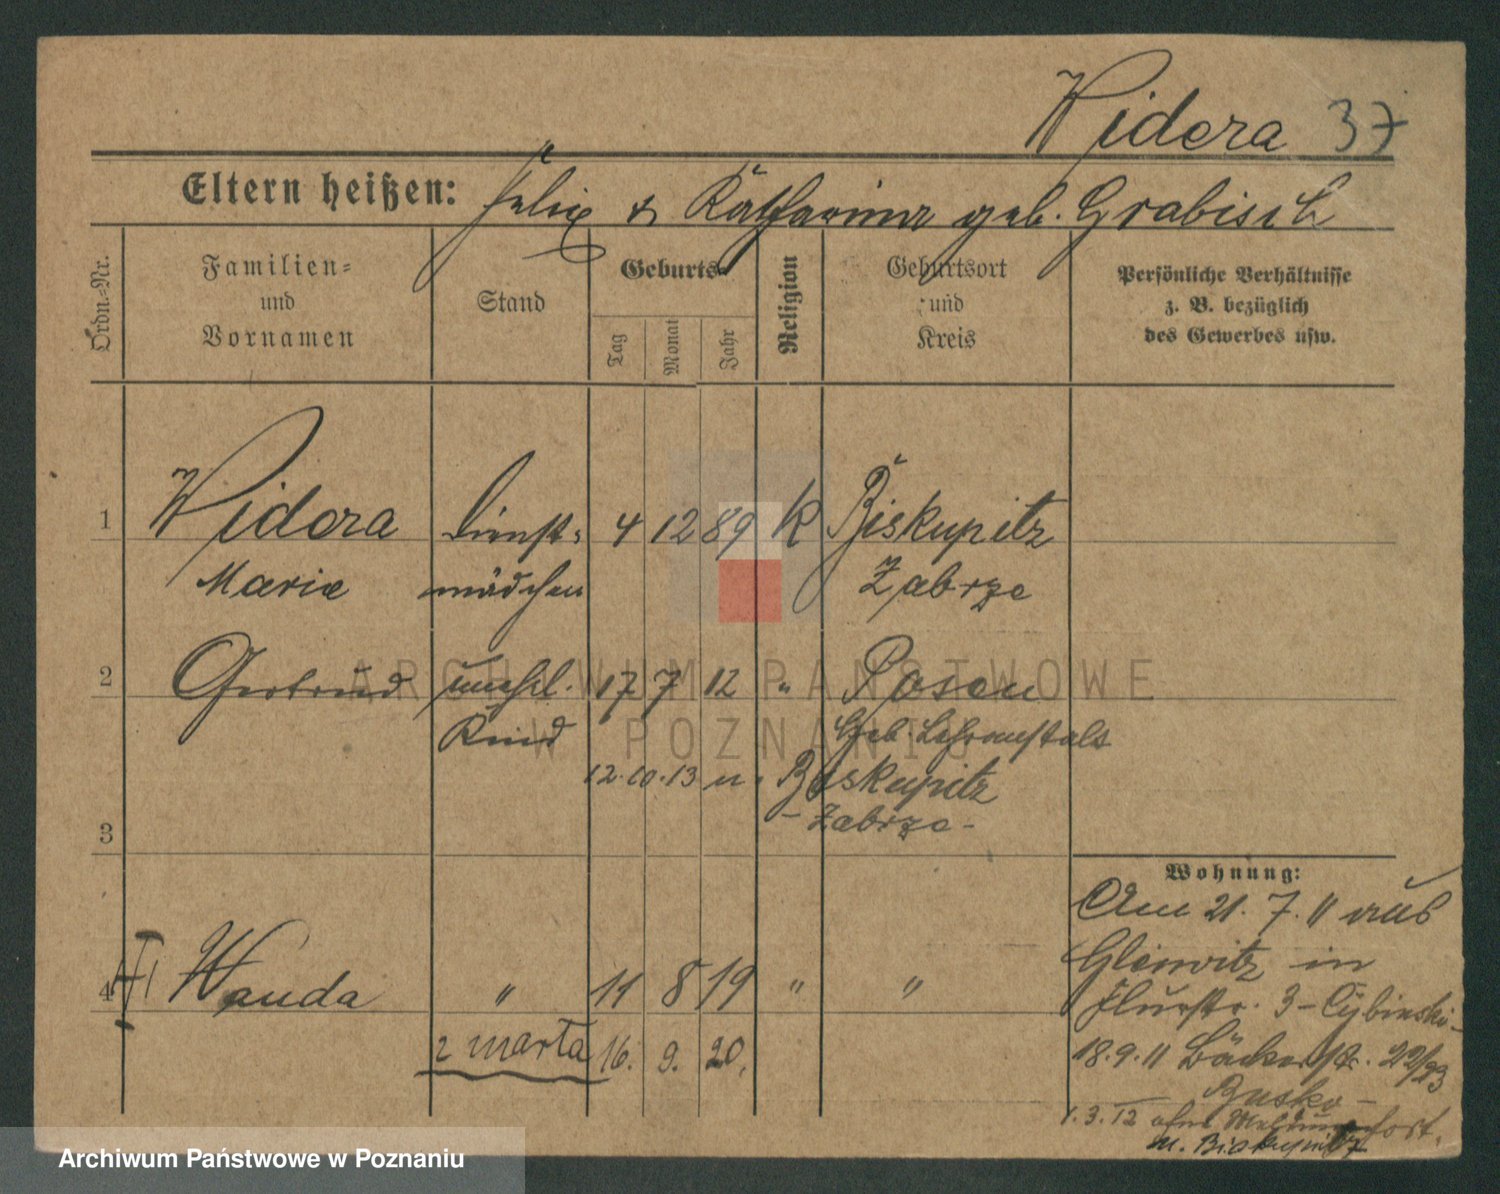 Widera 37
Eltern heißen: Felix & Katharina geb. Grabisch
Ordn.-Nr.
Familien- und Vornamen
Stand
Geburts-
Tag
Monat
Jahr
Religion
Geburtsort und Kreis
Persönliche Verhältnisse z. B. bezüglich des Gewerbes usw.
1 Widera Dienst- 4 12 89 K Biskupitz
Marie mädchen Zabrze
2 Gertrud unehl. 17 7 12 " Posen
Kind Geb. Lehranstalt
12.10.13 n. Biskupitz
- Zabrze -
3
Wohnung:
Am 21. 7. 11 aus
Gleiwitz in
Flurstr. 3 - Cybinski -
4 Wanda " 11 8 19 " "
2 Marta 16. 9. 20.
18.9.11 Bäckerstr. 22/23
Busko -
1.3.12 ohne Meldung fort.
n. Biskupitz
ARCHIWUM PAŃSTWOWE
W POZNANIU
Archiwum Państwowe w Poznaniu